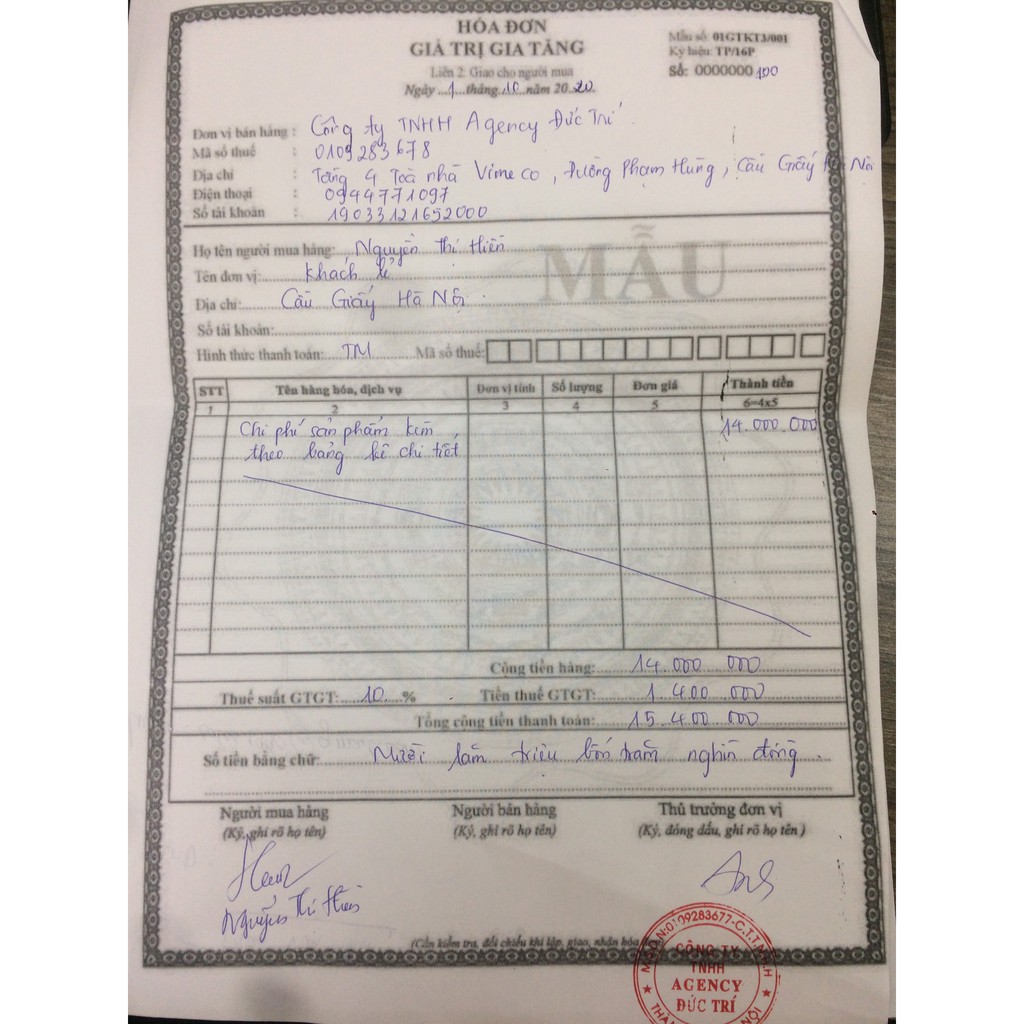 HÓA ĐƠN
GIÁ TRỊ GIA TĂNG
Liên 2: Giao cho người mua
Ngày 1 tháng 10 năm 2020
Mẫu số: 01GTKT3/001
Ký hiệu: TP/16P
Số: 0000000 100
Đơn vị bán hàng: Công ty TNHH Agency Đức Trí
Mã số thuế : 0109283678
Địa chỉ : Tầng 4 Toà nhà Vimeco, Đường Phạm Hùng, Cầu Giấy Hà Nội
Điện thoại : 0944771097
Số tài khoản : 19033121652000
MẪU
Họ tên người mua hàng: Nguyễn Thị Hiền
Tên đơn vị: Khách lẻ
Địa chỉ: Cầu Giấy Hà Nội
Số tài khoản:
Hình thức thanh toán: TM Mã số thuế:
STT Tên hàng hóa, dịch vụ Đơn vị tính Số lượng Đơn giá Thành tiền
1 2 3 4 5 6=4x5
Chi phí sản phẩm kèm 14.000.000
theo bảng kê chi tiết
Cộng tiền hàng: 14.000 000
Thuế suất GTGT: 10 % Tiền thuế GTGT: 1.400 000
Tổng cộng tiền thanh toán: 15.400 000
Số tiền bằng chữ: Mười lăm triệu bốn trăm nghìn đồng
Người mua hàng Người bán hàng Thủ trưởng đơn vị
(Ký, ghi rõ họ tên) (Ký, ghi rõ họ tên) (Ký, đóng dấu, ghi rõ họ tên)
Nguyễn Thị Hiền
(Cần kiểm tra, đối chiếu khi lập, giao, nhận hóa
M.S.D.N:0109283677-C.T.T.N.H.H
CÔNG TY
TNHH
AGENCY
ĐỨC TRÍ